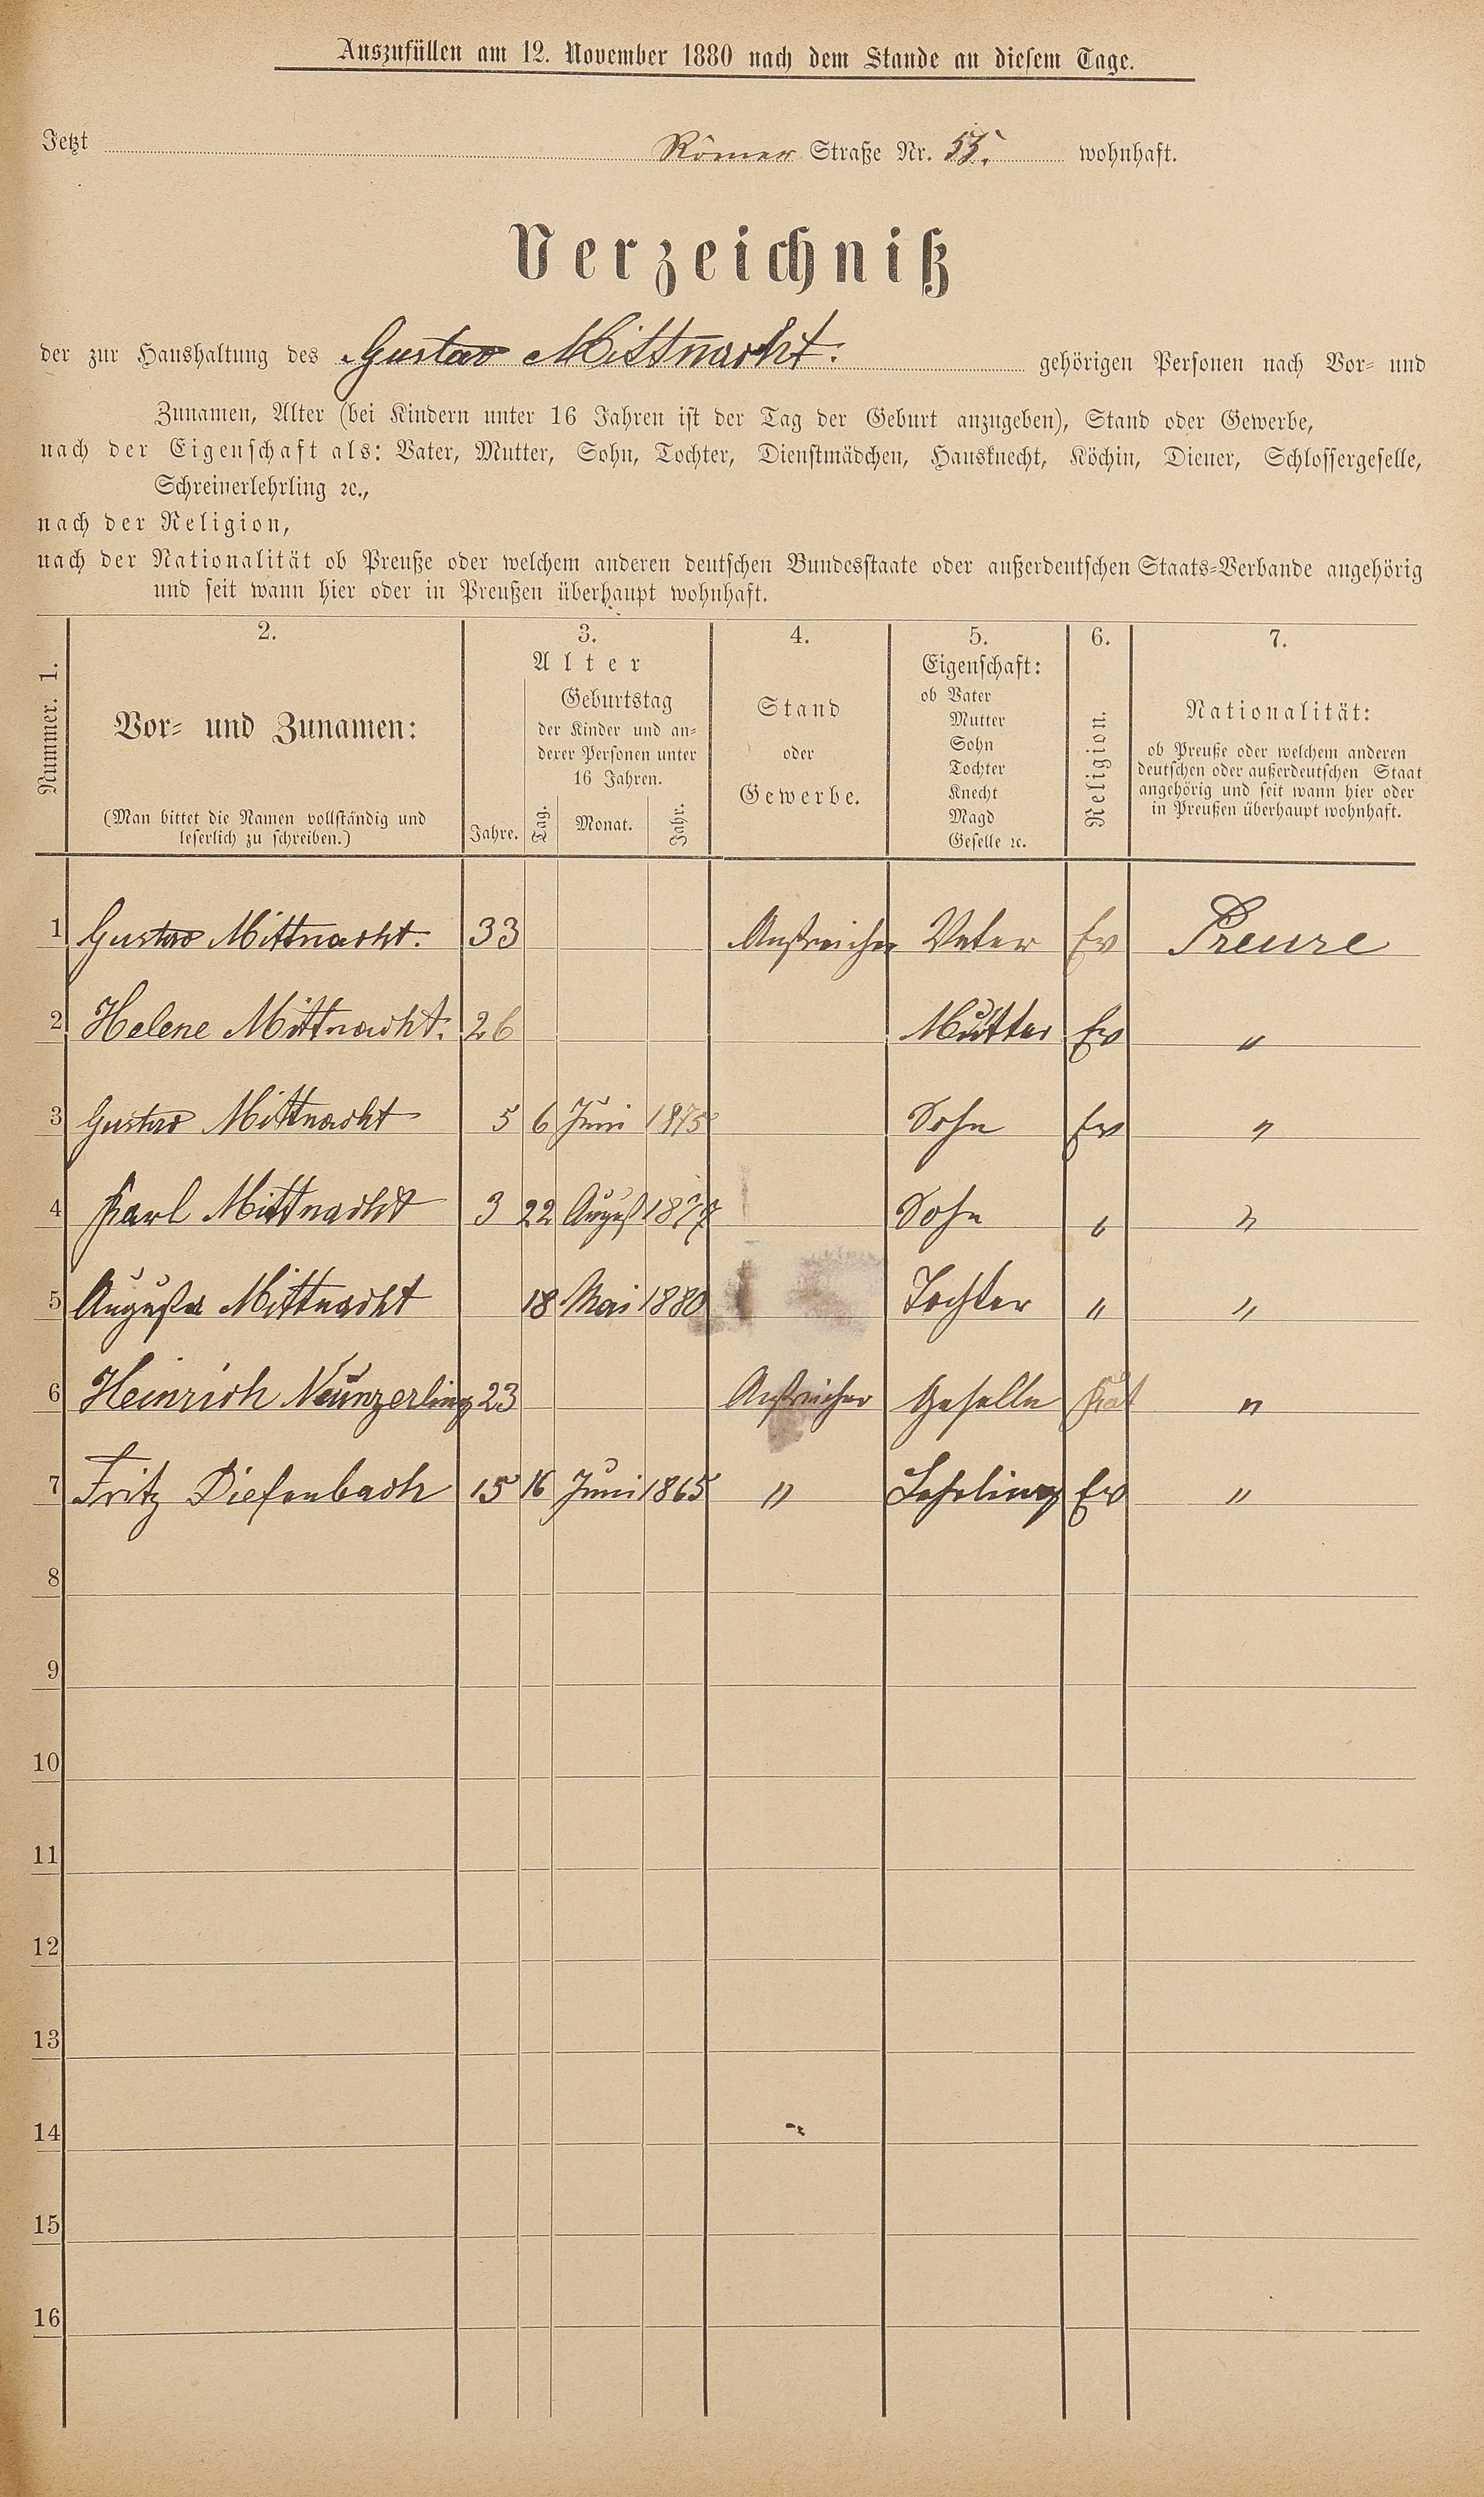 Auszufüllen am 12. November 1880 nach dem Stande an diesem Tage.
Jetzt Römer Straße Nr. 55. wohnhaft.
Verzeichniß
der zur Haushaltung des Gustav Mittnacht. gehörigen Personen nach Vor- und
Zunamen, Alter (bei Kindern unter 16 Jahren ist der Tag der Geburt anzugeben), Stand oder Gewerbe,
nach der Eigenschaft als: Vater, Mutter, Sohn, Tochter, Dienstmädchen, Hausknecht, Köchin, Diener, Schlossergeselle,
Schreinerlehrling ꝛc.,
nach der Religion,
nach der Nationalität ob Preuße oder welchem anderen deutschen Bundesstaate oder außerdeutschen Staats-Verbande angehörig
und seit wann hier oder in Preußen überhaupt wohnhaft.
Nummer. 1.
2.
Vor- und Zunamen:
(Man bittet die Namen vollständig und
leserlich zu schreiben.)
3.
Alter
Jahre.
Geburtstag
der Kinder und an-
derer Personen unter
16 Jahren.
Tag. Monat. Jahr.
4.
Stand
oder
Gewerbe.
5.
Eigenschaft:
ob Vater
Mutter
Sohn
Tochter
Knecht
Magd
Geselle ꝛc.
6.
Religion.
7.
Nationalität:
ob Preuße oder welchem anderen
deutschen oder außerdeutschen Staat
angehörig und seit wann hier oder
in Preußen überhaupt wohnhaft.
1 Gustav Mittnacht. 33 Anstreicher Vater Ev Preuse
2 Helene Mittnacht. 26 Mutter Ev "
3 Gustav Mittnacht 5 6 Juni 1875 Sohn Ev "
4 Karl Mittnacht 3 22 August 1877 Sohn " "
5 Augusta Mittnacht 18 Mai 1880 Tochter " "
6 Heinrich Neunzerling 23 Anstreicher Geselle Kat "
7 Fritz Diefenbach 15 16 Juni 1865 " Lehrling Ev "
8
9
10
11
12
13
14
15
16